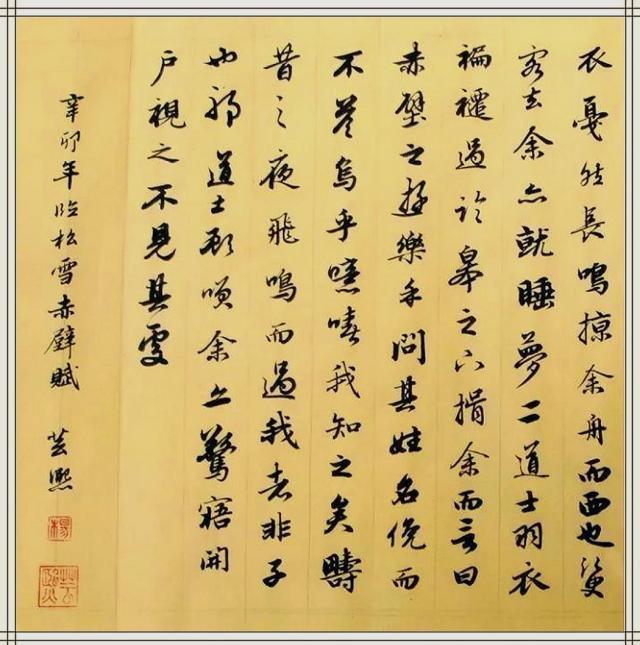 衣戛然長鳴掠余舟而西也須
客去余亦就睡夢二道士羽衣
褊褼過臨皋之下揖余而言曰
赤壁之遊樂乎問其姓名俛而
不答烏乎噫嘻我知之矣疇
昔之夜飛鳴而過我者非子
也耶道士顧咲余亦驚寤開
戶視之不見其處
辛卯年臨松雪赤壁賦 芸熙
楊